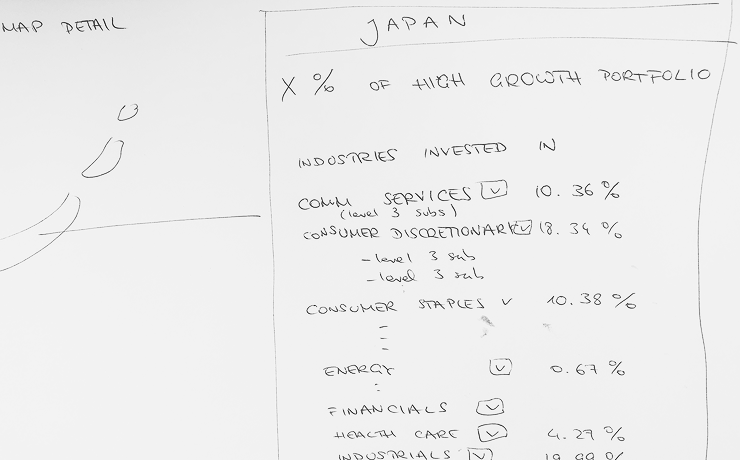 MAP DETAIL
JAPAN
X % OF HIGH GROWTH PORTFOLIO
INDUSTRIES INVESTED IN
COMM SERVICES 10.36%
(level 3 subs)
CONSUMER DISCRETIONARY 18.34%
- level 3 sub
- level 3 sub
CONSUMER STAPLES 10.38%
ENERGY 0.67%
FINANCIALS
HEALTH CARE 4.27%
INDUSTRIALS